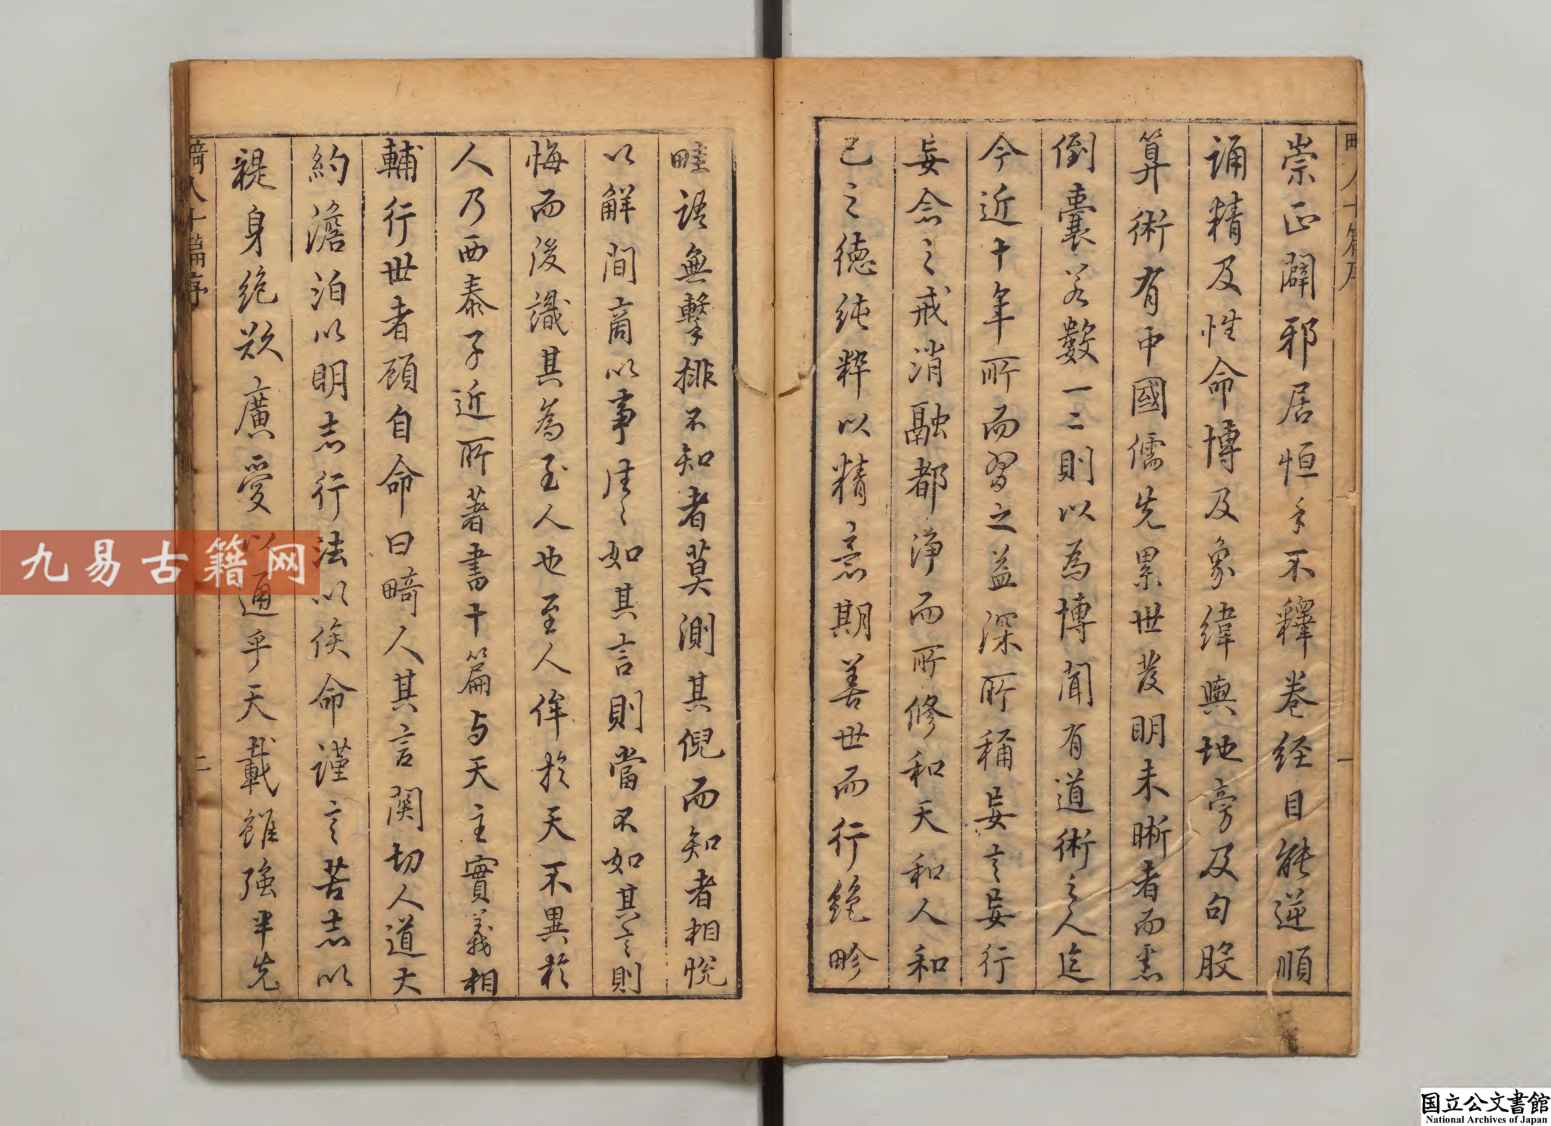 崇正闢邪居恒手不釋卷经目能逆順
誦精及性命博及象緯輿地旁及句股
算術有中國儒先累世发明未晰者而悉
倒囊若數一二則以為博聞有道術之人迄
今近十年所而習之益深所稱妄言妄行
妄念之戒消融都淨而所修和天和人和
己之德純粹以精意期善世而行绝畛
畦語無擊排不知者莫測其倪而知者相悅
以解間商以事往々如其言則當不如其言則
悔而後識其為至人也至人侔於天不異於
人乃西泰子近所著書十篇与天主實義相
輔行世者顧自命曰畸人其言関切人道大
約澹泊以明志行法以俟命謹言苦志以
禔身绝欲廣愛以通乎天載雖強半先
畸人十篇序
一
畸人十篇序
二
九易古籍网
国立公文書館
National Archives of Japan